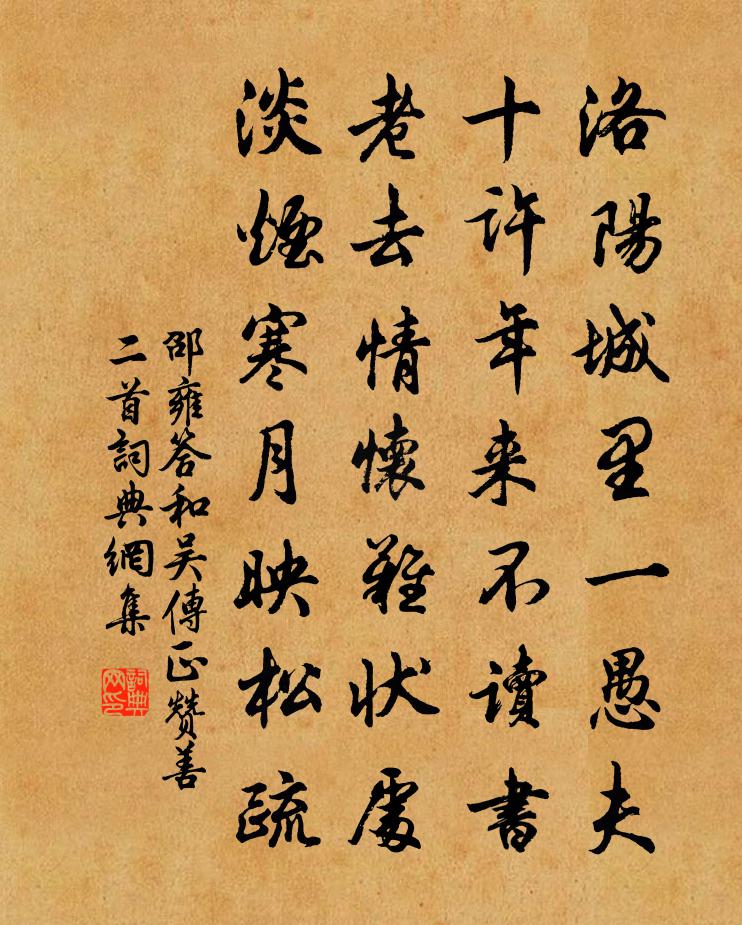 洛陽城里一愚夫
十許年来不讀書
老去情懷難狀處
淡煙寒月映松疏
邵雍答和吴傳正贊善
二首詞典網集
詞典
网印